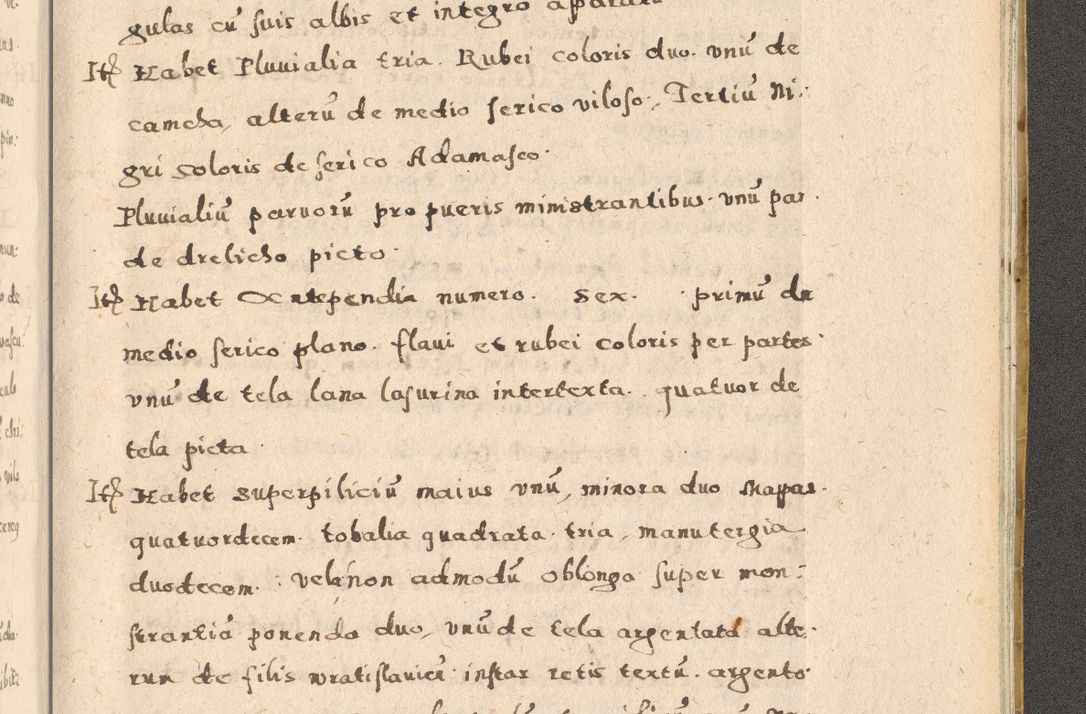 gulas cū suis albis et integro
Itē Habet Pluuialia tria. Rubei coloris duo. vnū de
camcha, alterū de medio serico viloso, Tertiū Ni:
gri coloris de serico Adamasco.
Pluuialiū paruorū pro pueris ministrantibus. vnū par.
de drelicho picto.
Itē Habet Antependia numero. Sex. primū de
medio serico plano. flaui et rubei coloris per partes.
vnū de tela lana lasurina intertexta. quatuor de
tela picta.
Itē Habet Superpiliciū maius vnū, minora duo Mappas.
quatuordecem. tobalia quadrata. tria, manutergia
duodecem. vela non admodū oblonga super mon:
strantiā ponenda duo, vnū de tela argentata alte:
rum de filis wratislauien̄. instar retis textū. argento.